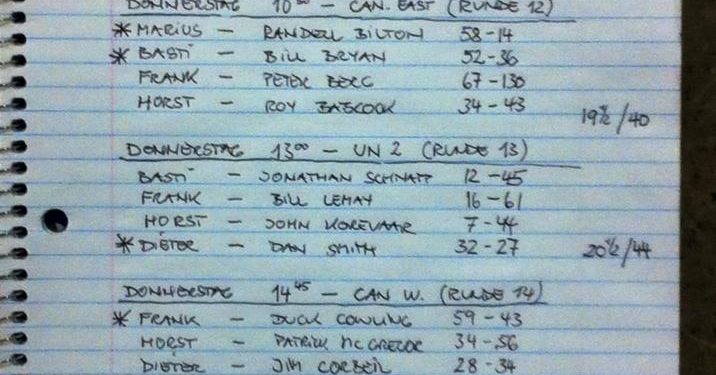 DONNERSTAG 10⁰⁰ - CAN. EAST (RUNDE 12)
* MARIUS - RANDELL BILTON 58-14
* BASTI - BILL BRYAN 52-36
FRANK - PETER BERG 67-130
HORST - ROY BABCOOK 34-43
19½/40
DONNERSTAG 13⁰⁰ - UN 2 (RUNDE 13)
BASTI - JONATHAN SCHNAPP 12-45
FRANK - BILL LEHAY 16-61
HORST - JOHN KOREVAAR 7-44
* DIETER - DAN SMITH 32-27 20½/44
DONNERSTAG 14⁴⁵ - CAN W. (RUNDE 14)
* FRANK - DUCK COWLING 59-43
HORST - PATRICK MCGREGOR 34-56
DIETER - JIM CORBEIL 28-34